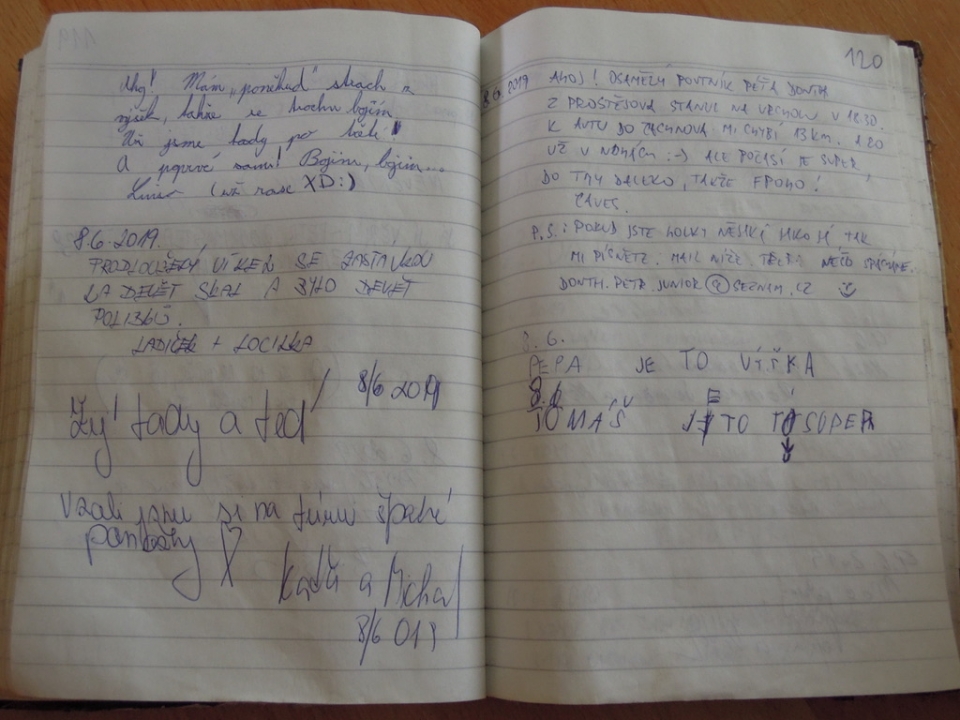 Ahoj! Mám "poněkud" strach z
výšek, takže se trochu bojím
Už jsme tady po třetí!
A poprvé sami! Bojím, bojím...
(už zase XD:)
8.6.2019.
PRODLOUŽENÝ VÍKEND SE ZASTÁVKOU
ZA DEVĚT SKAL A BYLO DEVĚT
POLIBKŮ.
LADÍČEK + LOCIKA
8/6 2019
Žij tady a teď
Vzali jsme si na túru špatné
pantofle
Kačí a Michal
8/6 019
120
8.6.2019
AHOJ! OSAMĚLÝ POUTNÍK PÉŤA DONTH
Z PROSTĚJOVA STANUL NA VRCHOLU V 18:30.
K AUTU DO ČACHNOVA MI CHYBÍ 13 KM. A 20
UŽ V NOHÁCH :-) ALE POČASÍ JE SUPER,
DO TMY DALEKO, TAKŽE FPOHO!
ČAVES.
P.S.: POKUD JSTE HOLKY NĚJAKÝ JAKO JÁ, TAK
MI PÍSNĚTE. MAIL NÍŽE. TŘEBA NĚCO SPÁCHÁME.
DONTH.PETR.JUNIOR@SEZNAM.CZ
8.6.
PEPA JE TO VÝŠKA
8.6
TOMÁŠ JE TO TÚ SUPER